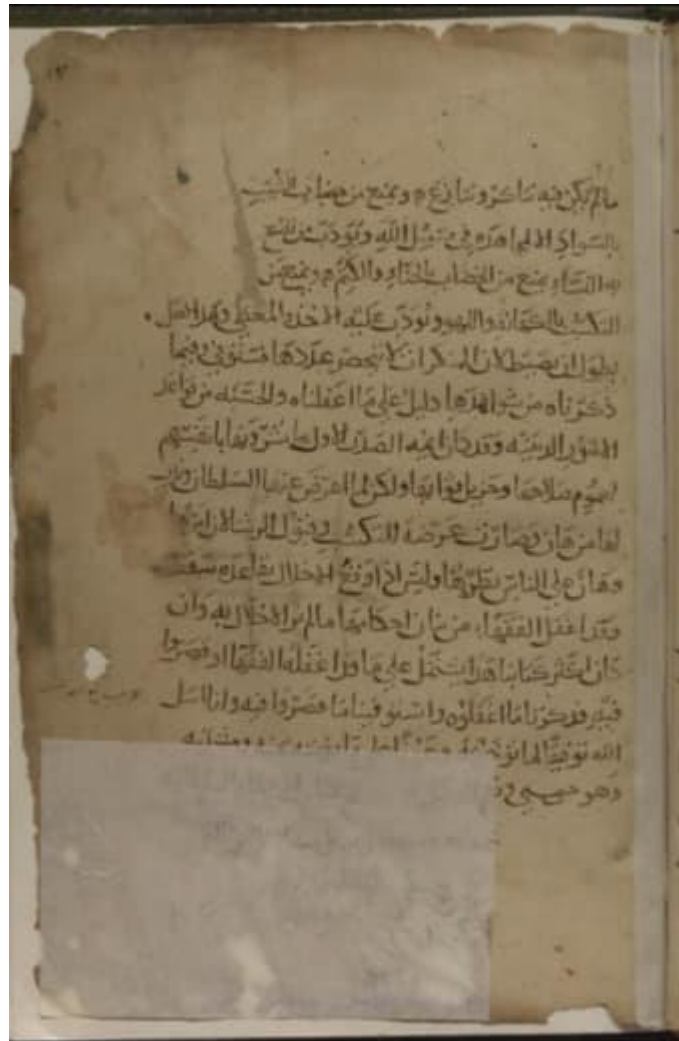 ١٩٣
مالم يكن فيه تناكر وتنازع ويمنع من خضاب الشيب
بالسواد الا لمجاهد في سبيل الله ويؤدب من يصبغ
به للنساء يمنع من الخضاب بالحناء والكتم ويمنع من
التكسب بالكهانه واللهو ويؤدب عليه الاخذ والمعطي وهذا فصل
يطول ان يبسط لان المنكرات لا ينحصر عددها فتستوفي وفيما
ذكرناه من شواهدها دليل علي ما اغفلناه والحسبه من قواعد
الامور الدينيه وقد كان ايمه الصدر الاول يباشرونها بانفسهم
لعموم صلاحها وجزيل ثوابها ولكن لما اعرض عنها السلطان وندب
لها من هان وصارت عرضة للتكسب وقبول الرشا لان امرها
وهان علي الناس خطرها وليس اذا وقع الاخلال بقاعده سقط
وقد اغفل الفقها من بيان احكامها مالم يجز الاخلال به وان
كان اكثر كتابنا هذا يشتمل علي ما قد اغفله الفقها او قصروا
فيه فذكرنا ما اغفلوه واستوفينا ما قصروا فيه وانا اسل
الله توفيقا لما
وهو حسبي